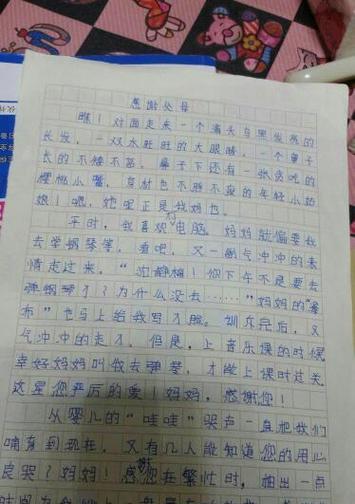 感谢父母
瞧！对面走来一个满头乌黑发亮的
长发，一双水旺旺的大眼睛，一个鼻子
长的不矮不高。鼻子下还有一张贪吃的
樱桃小嘴，身材也不胖不瘦的年轻小姑
娘！嗯，她呢正是我妈也。
平时，我喜欢打电脑，妈妈就偏要我
去学钢琴等。看吧，又一副气冲冲的表
情走过来。“静楠！你下午不是要去
弹钢琴了？为什么没去……”妈妈的“瀑
布”也马上给我写了脸。训斥完后，又
气冲冲的走了。但是，上音乐课的时候
幸好妈妈叫我去弹琴，才能上课时过关
这是您严厉的爱！妈妈，感谢您！
从婴儿的“哇哇”哭声一直把我们
哺育到现在，又有几人能知道您的用心
良哭？妈妈！感谢您在繁忙时，抽出一点
时间为我